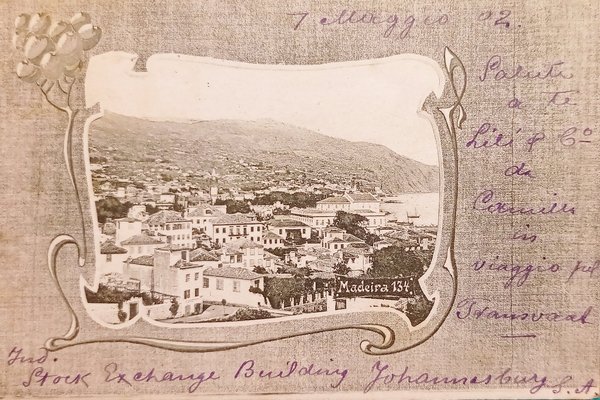 7 Maggio 02.
Saluti
a te
Lili & Cº
da
Camillo
in
viaggio pel
Transvaal
Madeira 134
Ind.
Stock Exchange Building Johannesburg S.A